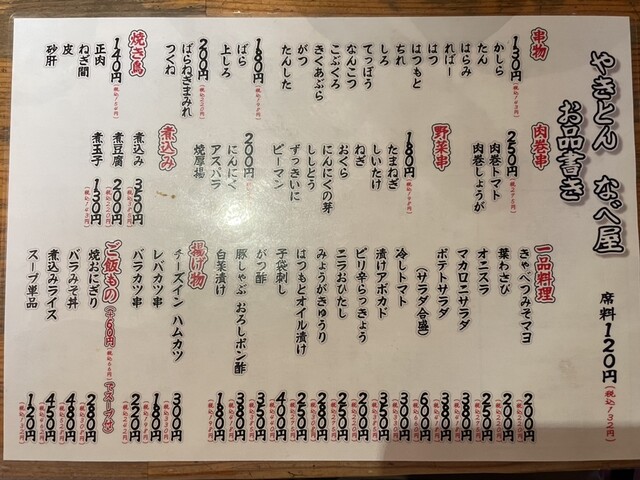 やきとん なべ屋
お品書き
席料120円(税込132円)
串物
130円(税込143円)
かしら
たん
はらみ
ればー
はつ
はつもと
ちれ
しろ
てっぽう
なんこつ
こぶくろ
きくあぶら
がつ
たんした
180円(税込198円)
ばら
上しろ
200円(税込220円)
ばらねぎまみれ
つくね
焼き鳥
140円(税込154円)
正肉
ねぎ間
皮
砂肝
肉巻串
250円(税込275円)
肉巻トマト
肉巻しょうが
野菜串
180円(税込198円)
たまねぎ
しいたけ
ねぎ
おくら
にんにくの芽
ししとう
ずっきいに
ピーマン
200円(税込220円)
にんにく
アスパラ
焼厚揚
煮込み
煮込み
煮豆腐 200円(税込220円)
煮玉子 130円(税込143円)
一品料理
きゃべつみそマヨ
葉わさび 200円
オニスラ 200円
マカロニサラダ
ポテトサラダ
(サラダ合盛) 600円
冷しトマト 300円
漬けアボカド 350円
ピリ辛らっきょう
ニラおひたし 250円
みょうがきゅうり
はつもとオイル漬け 250円
子袋刺し
がつ酢 350円
豚しゃぶ おろしポン酢
白菜漬け 180円
揚げ物
チーズイン ハムカツ 300円
レバカツ串 180円
バラカツ串 220円
ご飯もの(+60円(税込66円)でスープ付)
焼おにぎり 280円
バラみそ丼 480円
煮込みライス 450円
スープ単品 120円